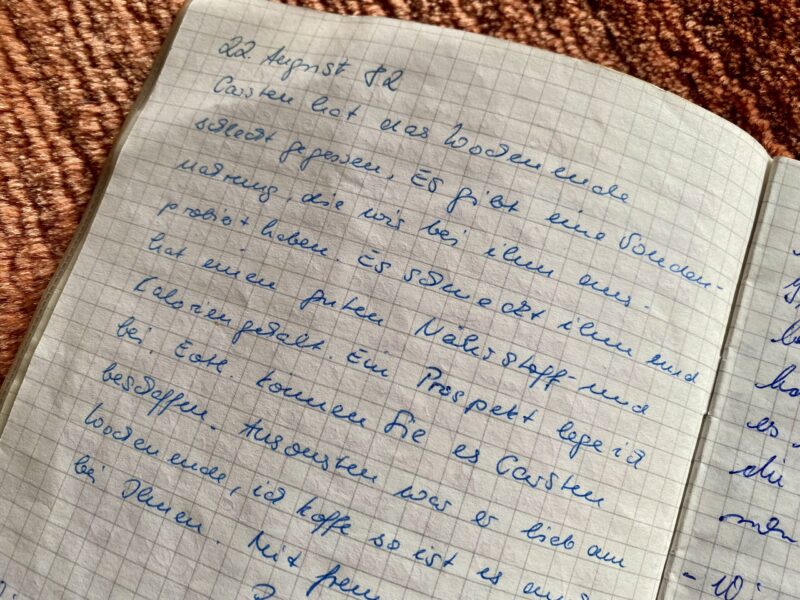 22. August 82
Carsten hat das Wochenende
schlecht gegessen. Es gibt eine Sonden-
nahrung, die wir bei ihm aus-
probiert haben. Es schmeckt ihm und
hat einen guten Nährstoff- und
Kaloriengehalt. Ein Prospekt lege ich
bei. Evtl. können Sie es Carsten
beschaffen. Ansonsten war er lieb am
Wochenende, ich hoffe so ist es auch
bei Ihnen. Mit freun
es
die
- 10